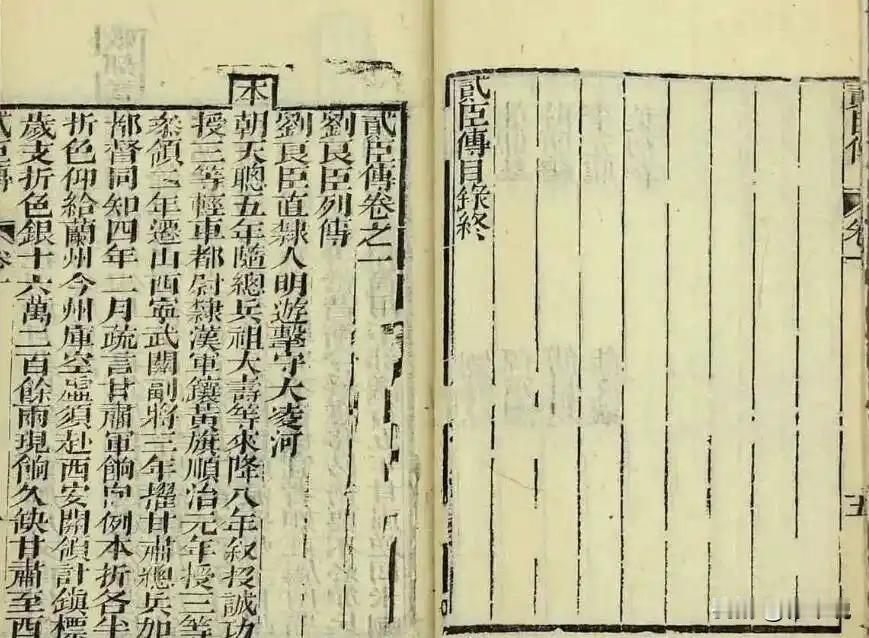 貳臣傳
卷一
五
貳臣傳目錄終
貳臣傳卷之一
劉良臣列傳
劉良臣直隸人明遊擊守大凌河
本
朝天聰五年隨總兵祖大壽等來降八年叙投誠功
授三等輕車都尉隸漢軍鑲黃旗順治元年授三等
叅領二年遷山西寧武關副將三年擢甘肅總兵加
都督同知四年二月疏言甘肅軍餉向例本折各半
折色仰給蘭州今州庫空虛須赴西安開領計鎮標
歲支折色銀十六萬二百餘兩現餉久缺甘肅至西
貳臣傳
卷一